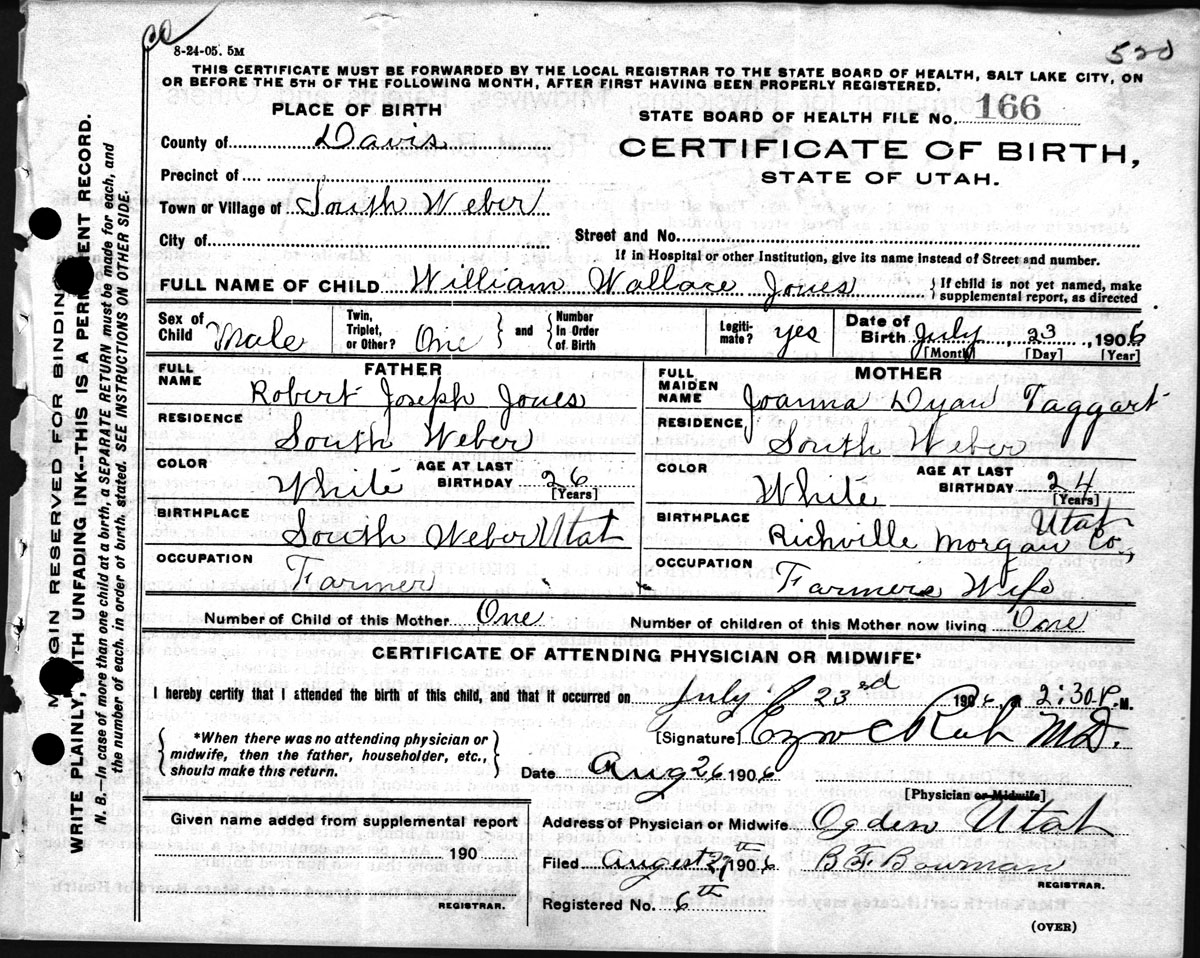 8-24-05. 5M
520
THIS CERTIFICATE MUST BE FORWARDED BY THE LOCAL REGISTRAR TO THE STATE BOARD OF HEALTH, SALT LAKE CITY, ON
OR BEFORE THE 5TH OF THE FOLLOWING MONTH, AFTER FIRST HAVING BEEN PROPERLY REGISTERED.
PLACE OF BIRTH
STATE BOARD OF HEALTH FILE No. 166
County of Davis
CERTIFICATE OF BIRTH,
STATE OF UTAH.
Precinct of
Town or Village of South Weber
City of
Street and No.
If in Hospital or other Institution, give its name instead of Street and number.
FULL NAME OF CHILD William Wallace Jones {If child is not yet named, make
supplemental report, as directed
Sex of Child Male
Twin, Triplet, or Other? One
and
Number In Order of Birth
Legiti- mate? yes
Date of Birth July, 23, 1906
[Month] [Day] [Year]
FATHER
FULL NAME Robert Joseph Jones
RESIDENCE South Weber
COLOR White
AGE AT LAST BIRTHDAY 26
[Years]
BIRTHPLACE South Weber Utah
OCCUPATION Farmer
MOTHER
FULL MAIDEN NAME Joanna Dyan Taggart
RESIDENCE South Weber
COLOR White
AGE AT LAST BIRTHDAY 24
[Years]
BIRTHPLACE Richville Morgan Co., Utah
OCCUPATION Farmers Wife
Number of Child of this Mother One
Number of children of this Mother now living One
CERTIFICATE OF ATTENDING PHYSICIAN OR MIDWIFE*
I hereby certify that I attended the birth of this child, and that it occurred on July 23rd 1906, at 2:30 P. M.
{*When there was no attending physician or
midwife, then the father, householder, etc.,
should make this return.}
[Signature] M.D.
Date Aug 26 1906
[Physician or Midwife]
Given name added from supplemental report
190
REGISTRAR.
Address of Physician or Midwife Ogden Utah
Filed August 27th 1906 B. F. Bowman
REGISTRAR.
Registered No. 6th
(OVER)
MARGIN RESERVED FOR BINDING
WRITE PLAINLY, WITH UNFADING INK--THIS IS A PERMANENT RECORD.
N. B.—In case of more than one child at a birth, a SEPARATE RETURN must be made for each, and
the number of each, in order of birth, stated. SEE INSTRUCTIONS ON OTHER SIDE.